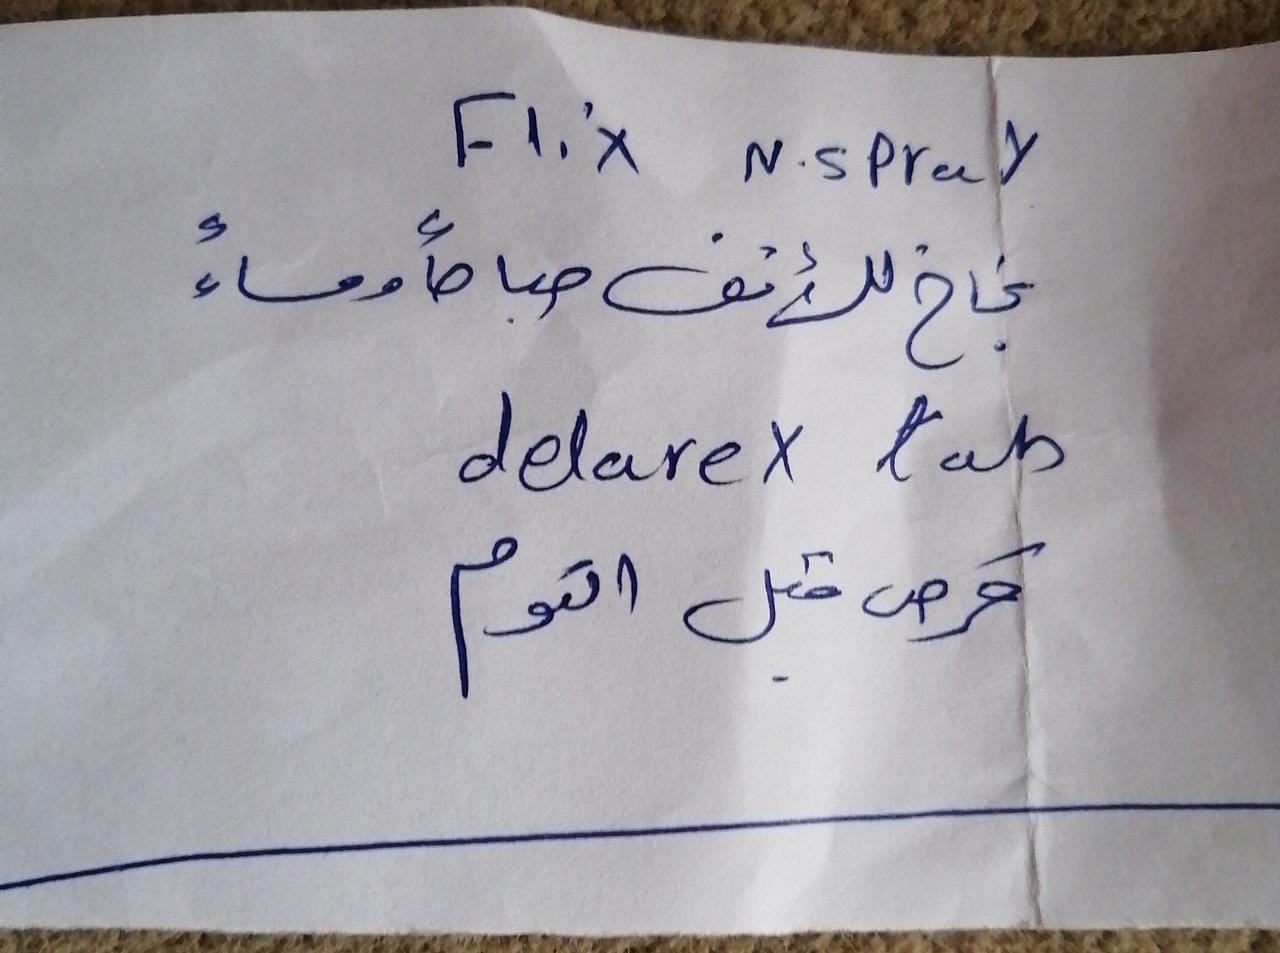 Flix N.spray
بخاخ للأنف صباحاً ومساءً
delarex tab
قرص قبل النوم